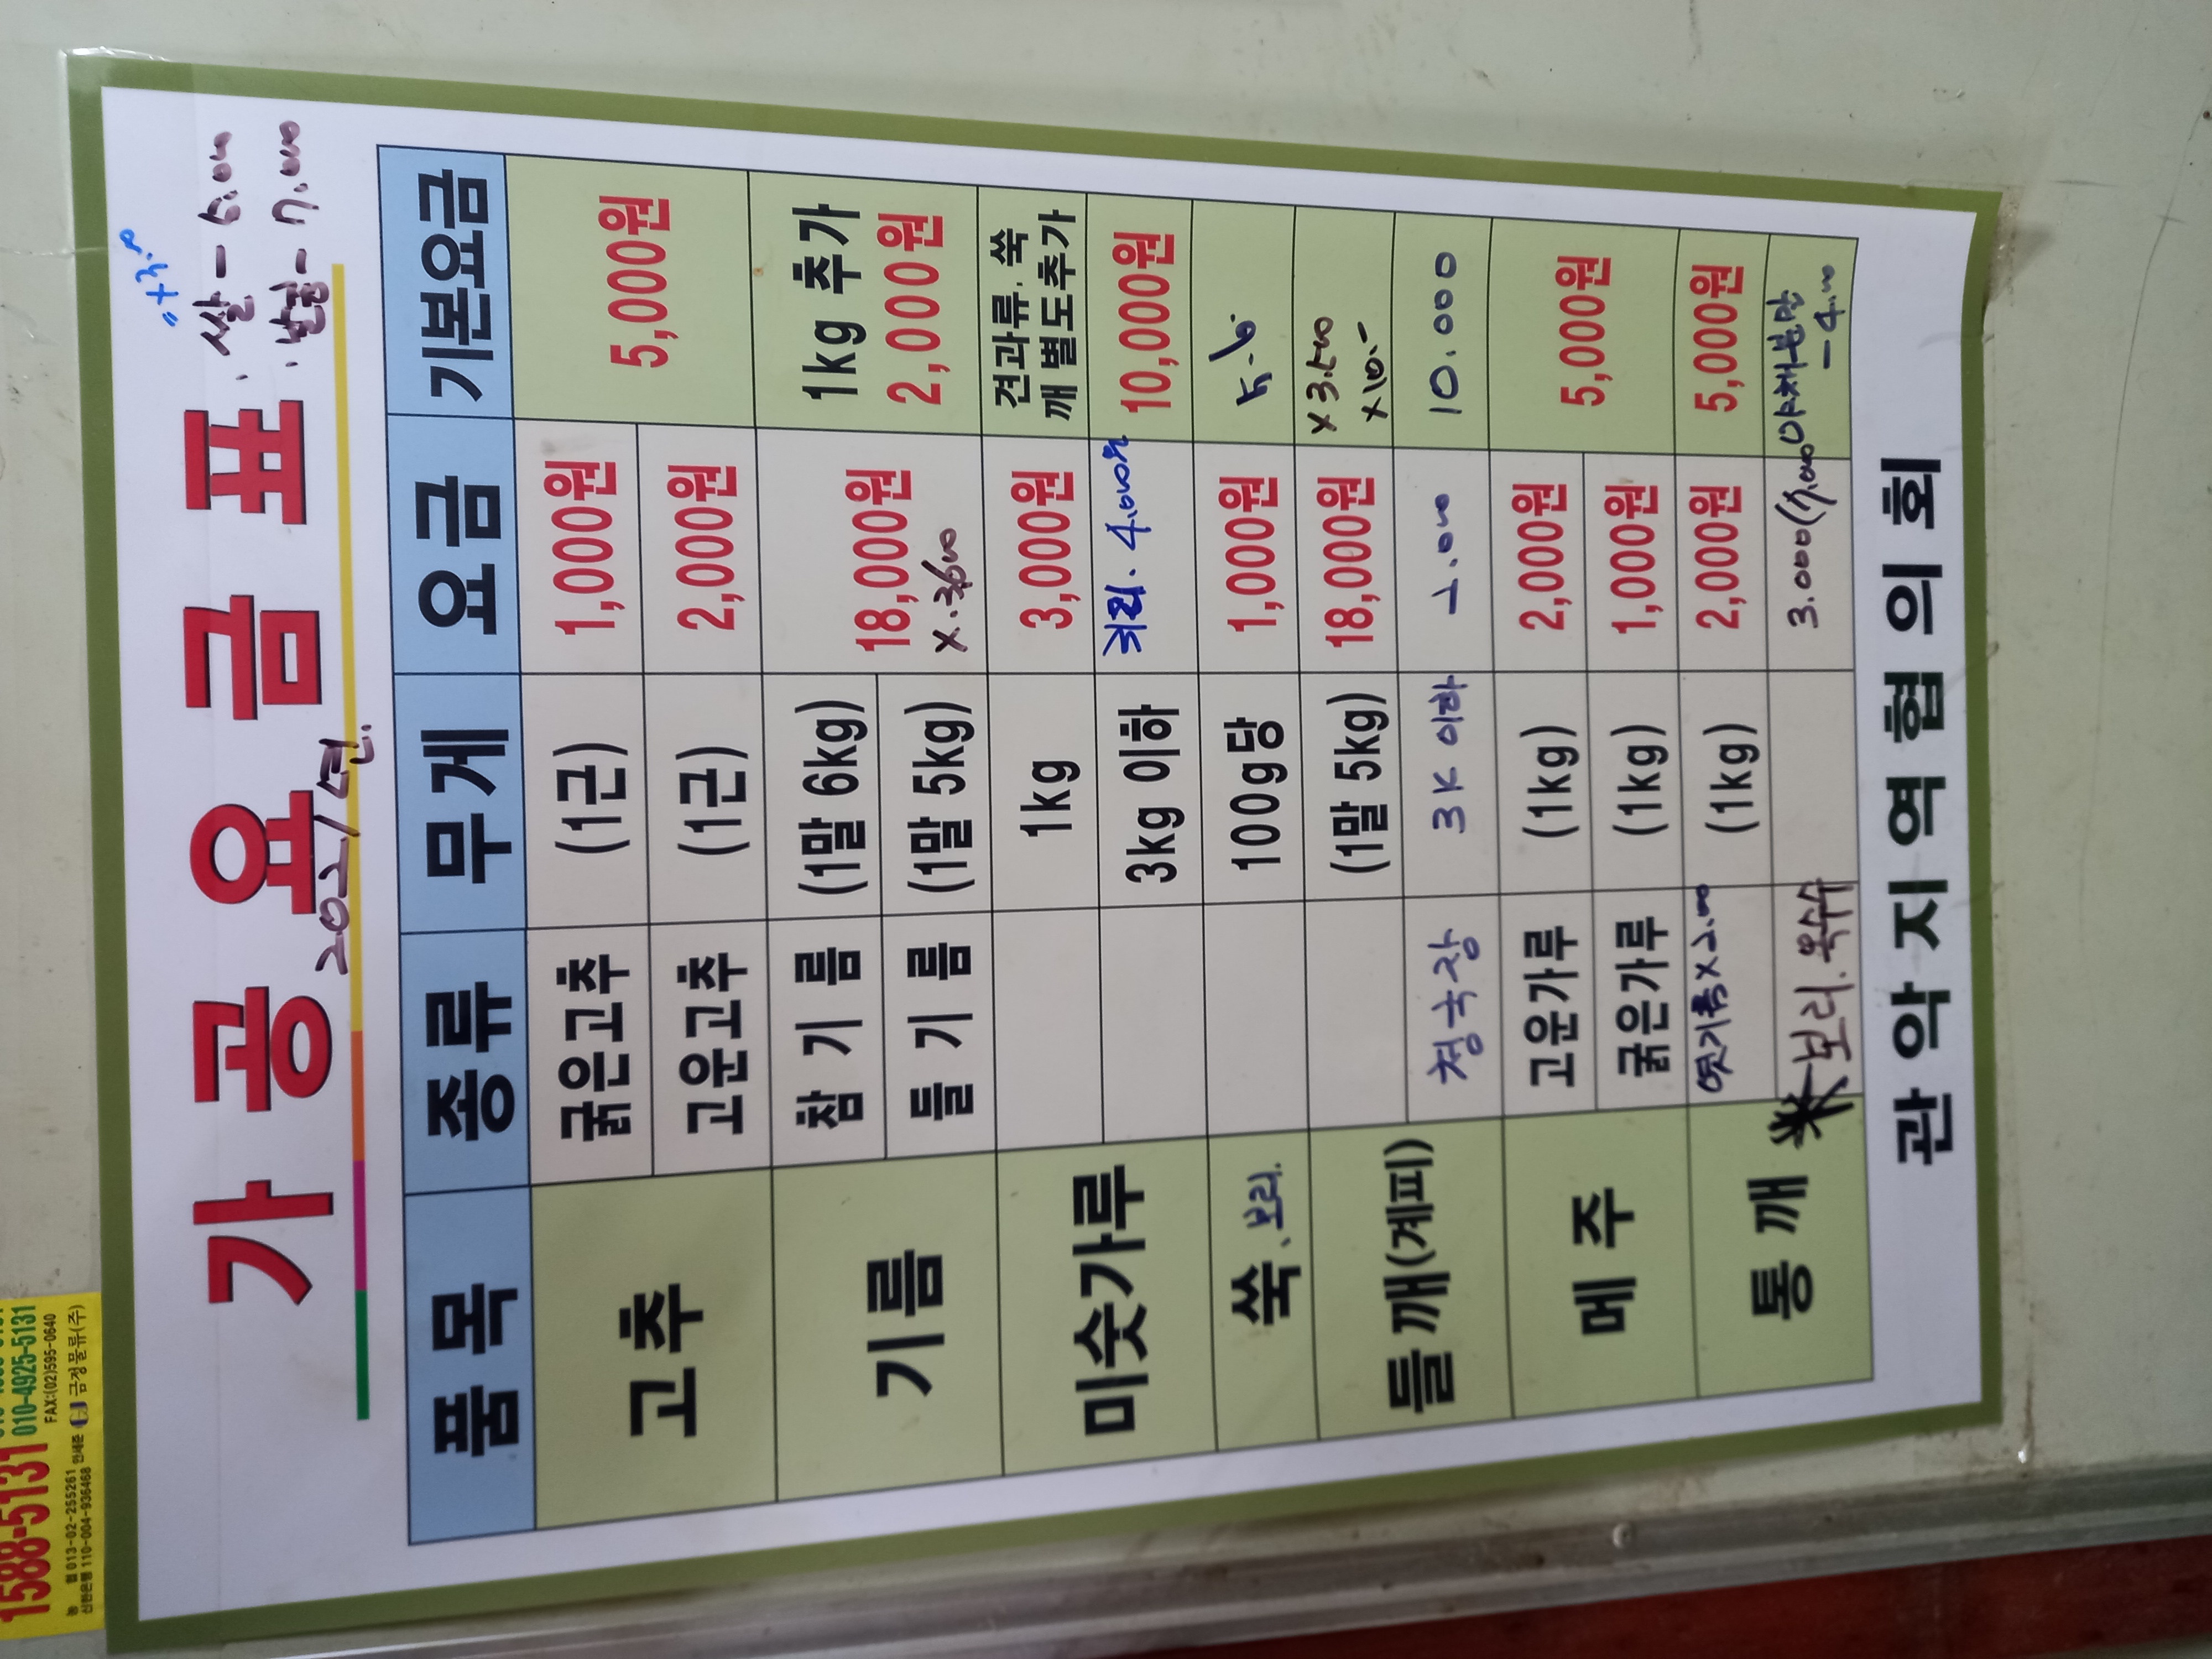 1588-5131
010-4925-5131
FAX:(02)595-0640
농 협 013-02-255261 안세준
신한은행 110-004-936468
금정물류(주)
가공요금표
2021년.
"+3.
. 쌀 - 6.000
. - 7.000
품목 종류 무게 요금 기본요금
고추 굵은고추 (1근) 1,000원 5,000원
고운고추 (1근) 2,000원
기름 참기름 (1말 6kg) 18,000원 1kg 추가
들기름 (1말 5kg) x.3600 2,000원
미숫가루 1kg 3,000원 견과류, 쑥
깨 별도추가
3kg 이하 귀리. 4.000원 10,000원
쑥、보리. 100g당 1,000원
들깨(계피) (1말 5kg) 18,000원 x3.500
x10.-
청국장 3K 이하 2.000 10.000
메주 고운가루 (1kg) 2,000원 5,000원
굵은가루 (1kg) 1,000원
통깨 엿기름x2.000 (1kg) 2,000원 5,000원
보리. 옥수수 3.000(7.000 야채분말
- 4.000
관악지역협의회